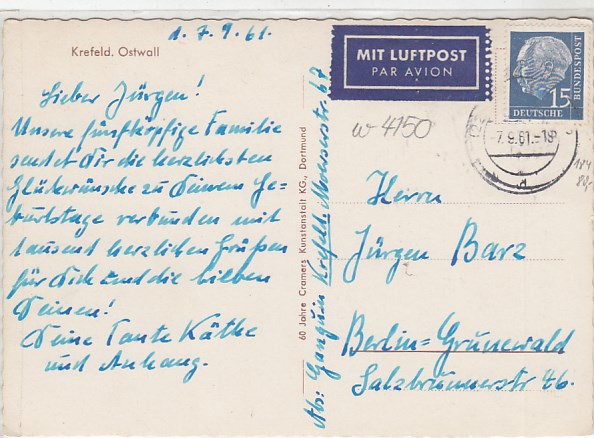 d. 7. 9. 61.
Krefeld. Ostwall
Lieber Jürgen!
Unsere fünfköpfige Familie
sendet Dir die herzlichsten
Glückwünsche zu Deinem Ge-
burtstage verbunden mit
tausend herzlichen Grüßen
für Dich und die lieben
Deinen!
Deine Tante Käthe
und Anhang.
60 Jahre Cramers Kunstanstalt KG., Dortmund
Krefeld, Moerserstr. 67
MIT LUFTPOST
PAR AVION
15
DEUTSCHE
BUNDESPOST
-7.9.61.-18
w 4150
Herrn
Jürgen Barz
Berlin-Grunewald
Salzbrunnerstr 46.